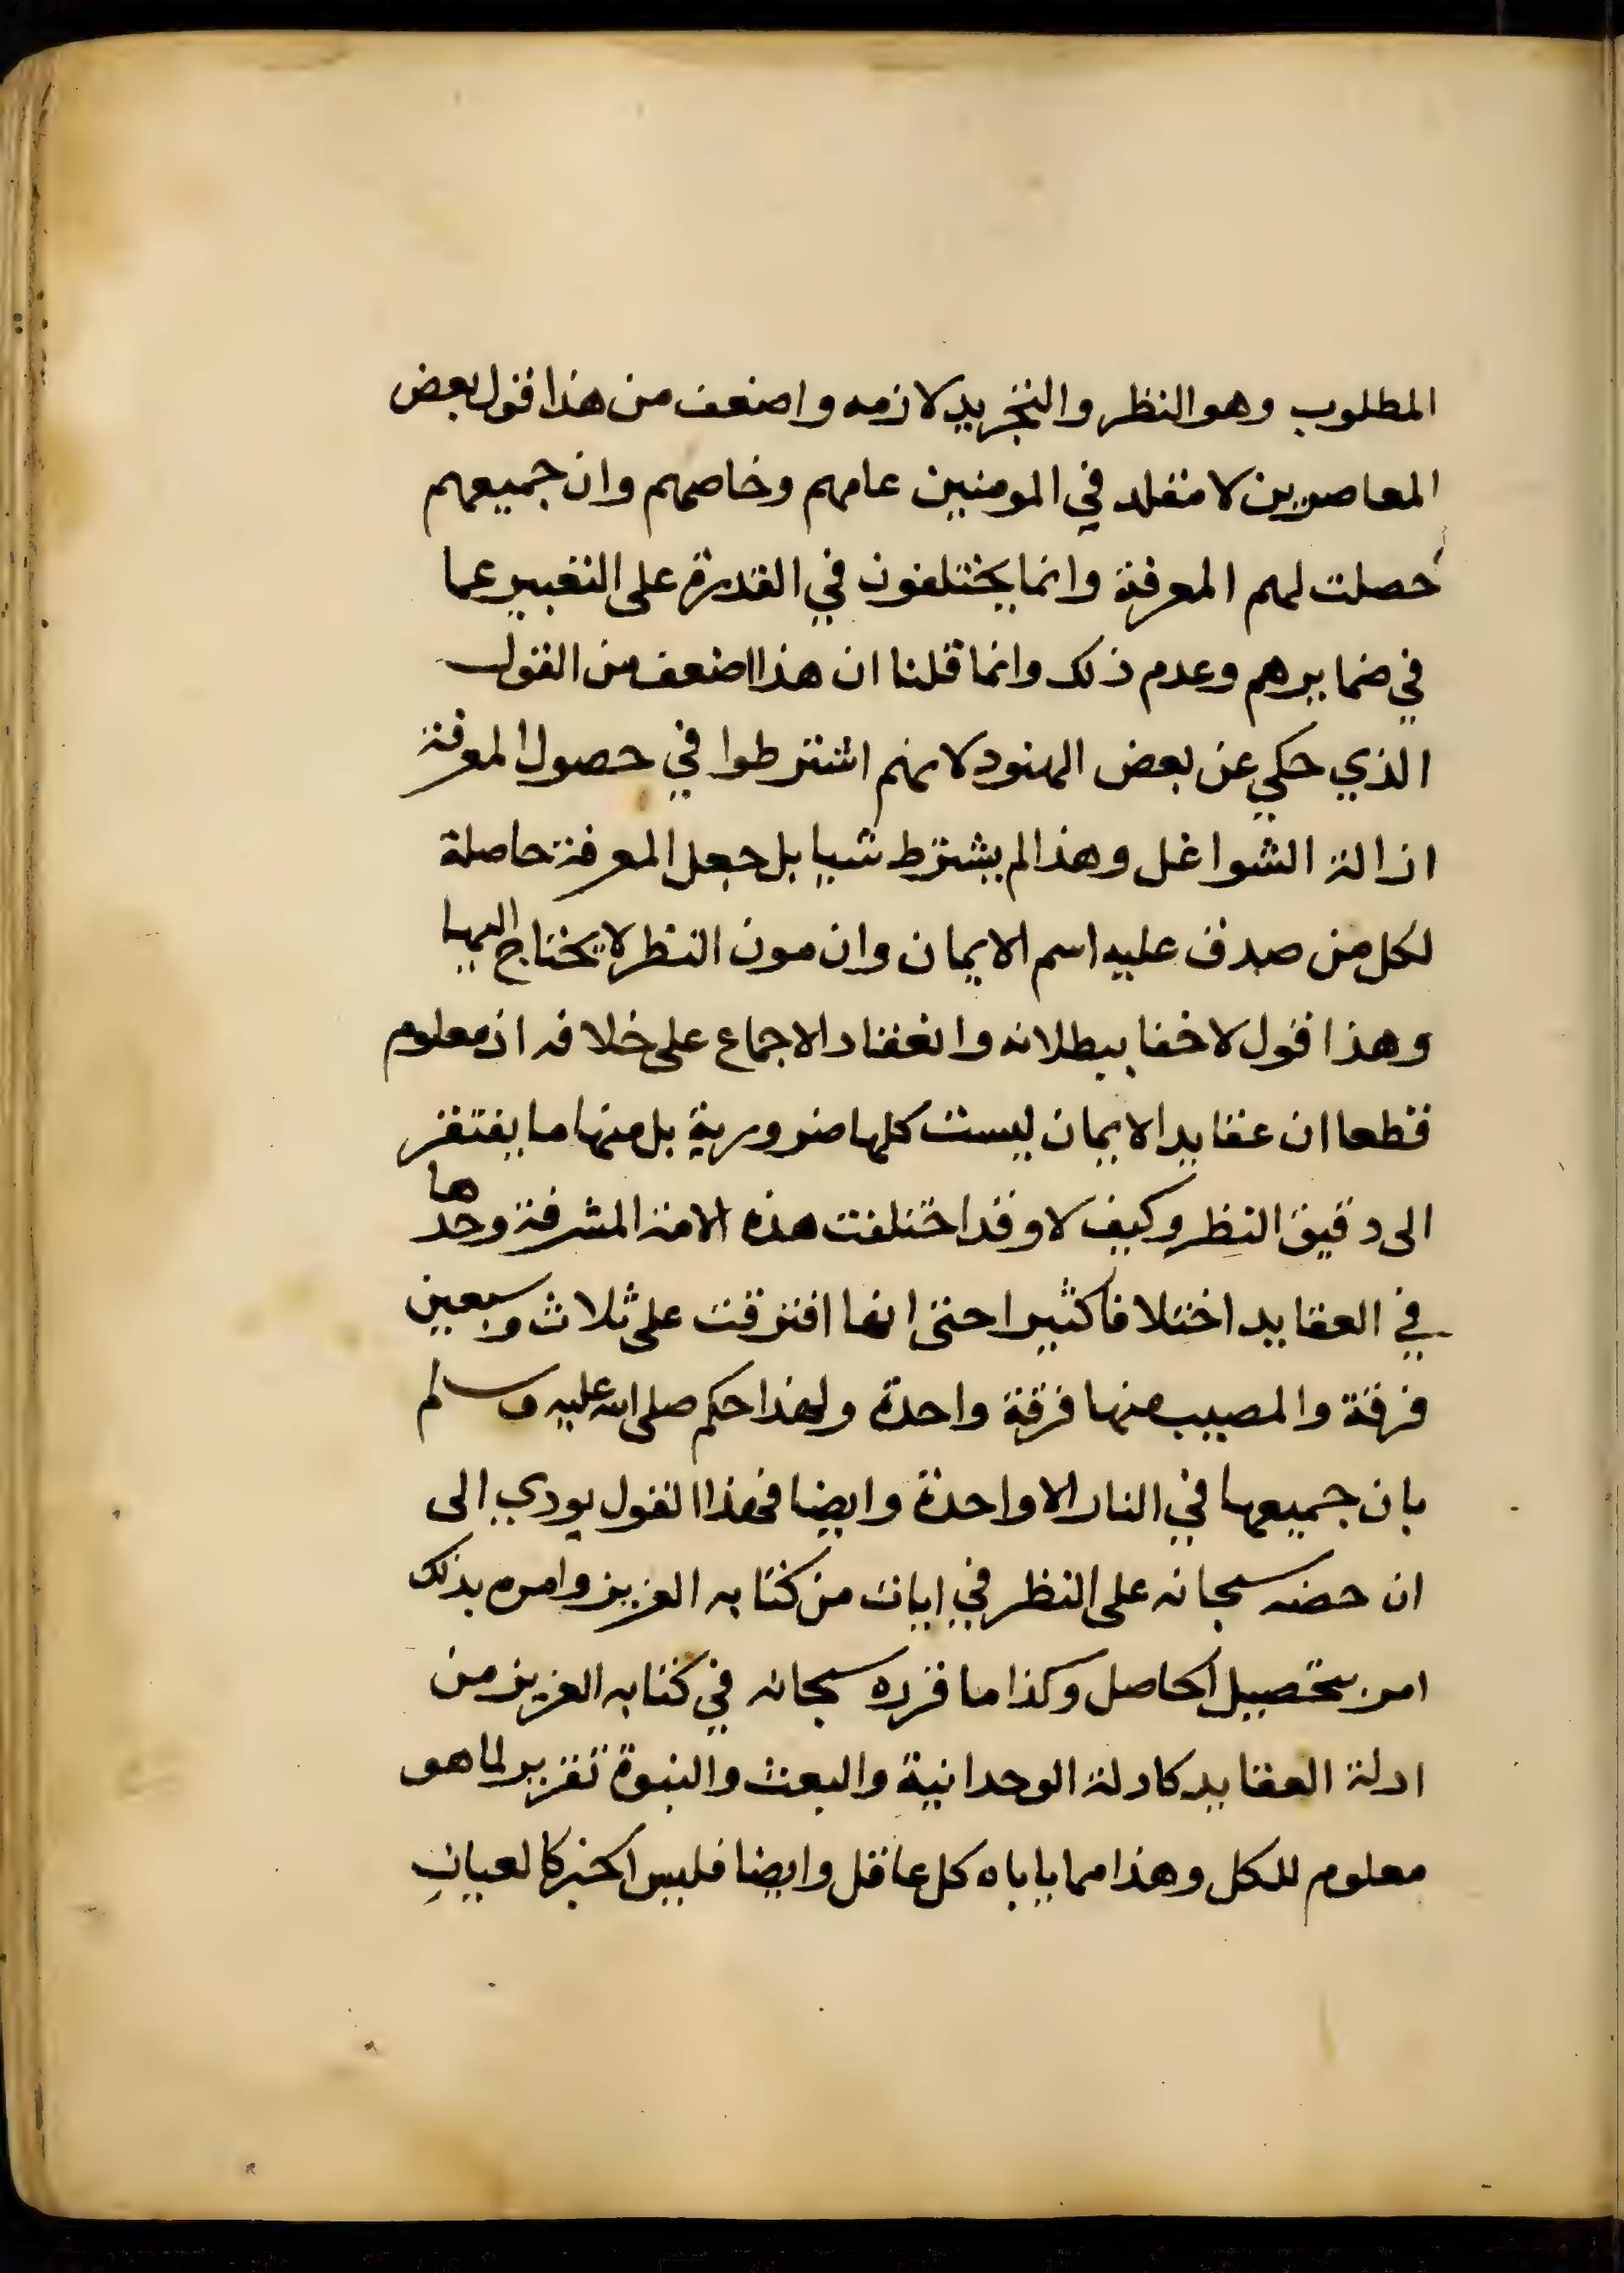 المطلوب وهو النظر والتجريد لازمه واضعف من هذا قول بعض
المعاصرين لا مقلد في المومنين عامهم وخاصهم وان جميعهم
حصلت لهم المعرفة وانما يختلفون في القدرة على التعبير عما
في ضمايرهم وعدم ذلك وانما قلنا ان هذا اضعف من القول
الذي حكي عن بعض الهنود لانهم اشترطوا في حصول المعرفة
ازالة الشواغل وهذا لم يشترط شيا بل جعل المعرفة حاصلة
لكل من صدق عليه اسم الايمان وان مون النظر لا يحتاج اليها
وهذا قول لا خفا ببطلانه وانعقاد الاجماع على خلافه اذ معلوم
قطعا ان عقايد الايمان ليست كلها ضرورية بل منها ما يفتقر
الى دقيق النظر وكيف لا وقد اختلفت هذه الامة المشرفة وحدها
في العقايد اختلافا كثيرا حتى انها افترقت على ثلاث وسبعين
فرقة والمصيب منها فرقة واحدة ولهذا حكم صلى الله عليه وسلم
بان جميعها في النار الا واحدة وايضا فهذا القول يودي الى
ان حضه سبحانه على النظر في ايات من كتابه العزيز وامره بذلك
امر بتحصيل الحاصل وكذا ما قرره سبحانه في كتابه العزيز من
ادلة العقايد كادلة الوحدانية والبعث والنبوة تقرير لما هو
معلوم للكل وهذا مما ياباه كل عاقل وايضا فليس الخبر كالعيان